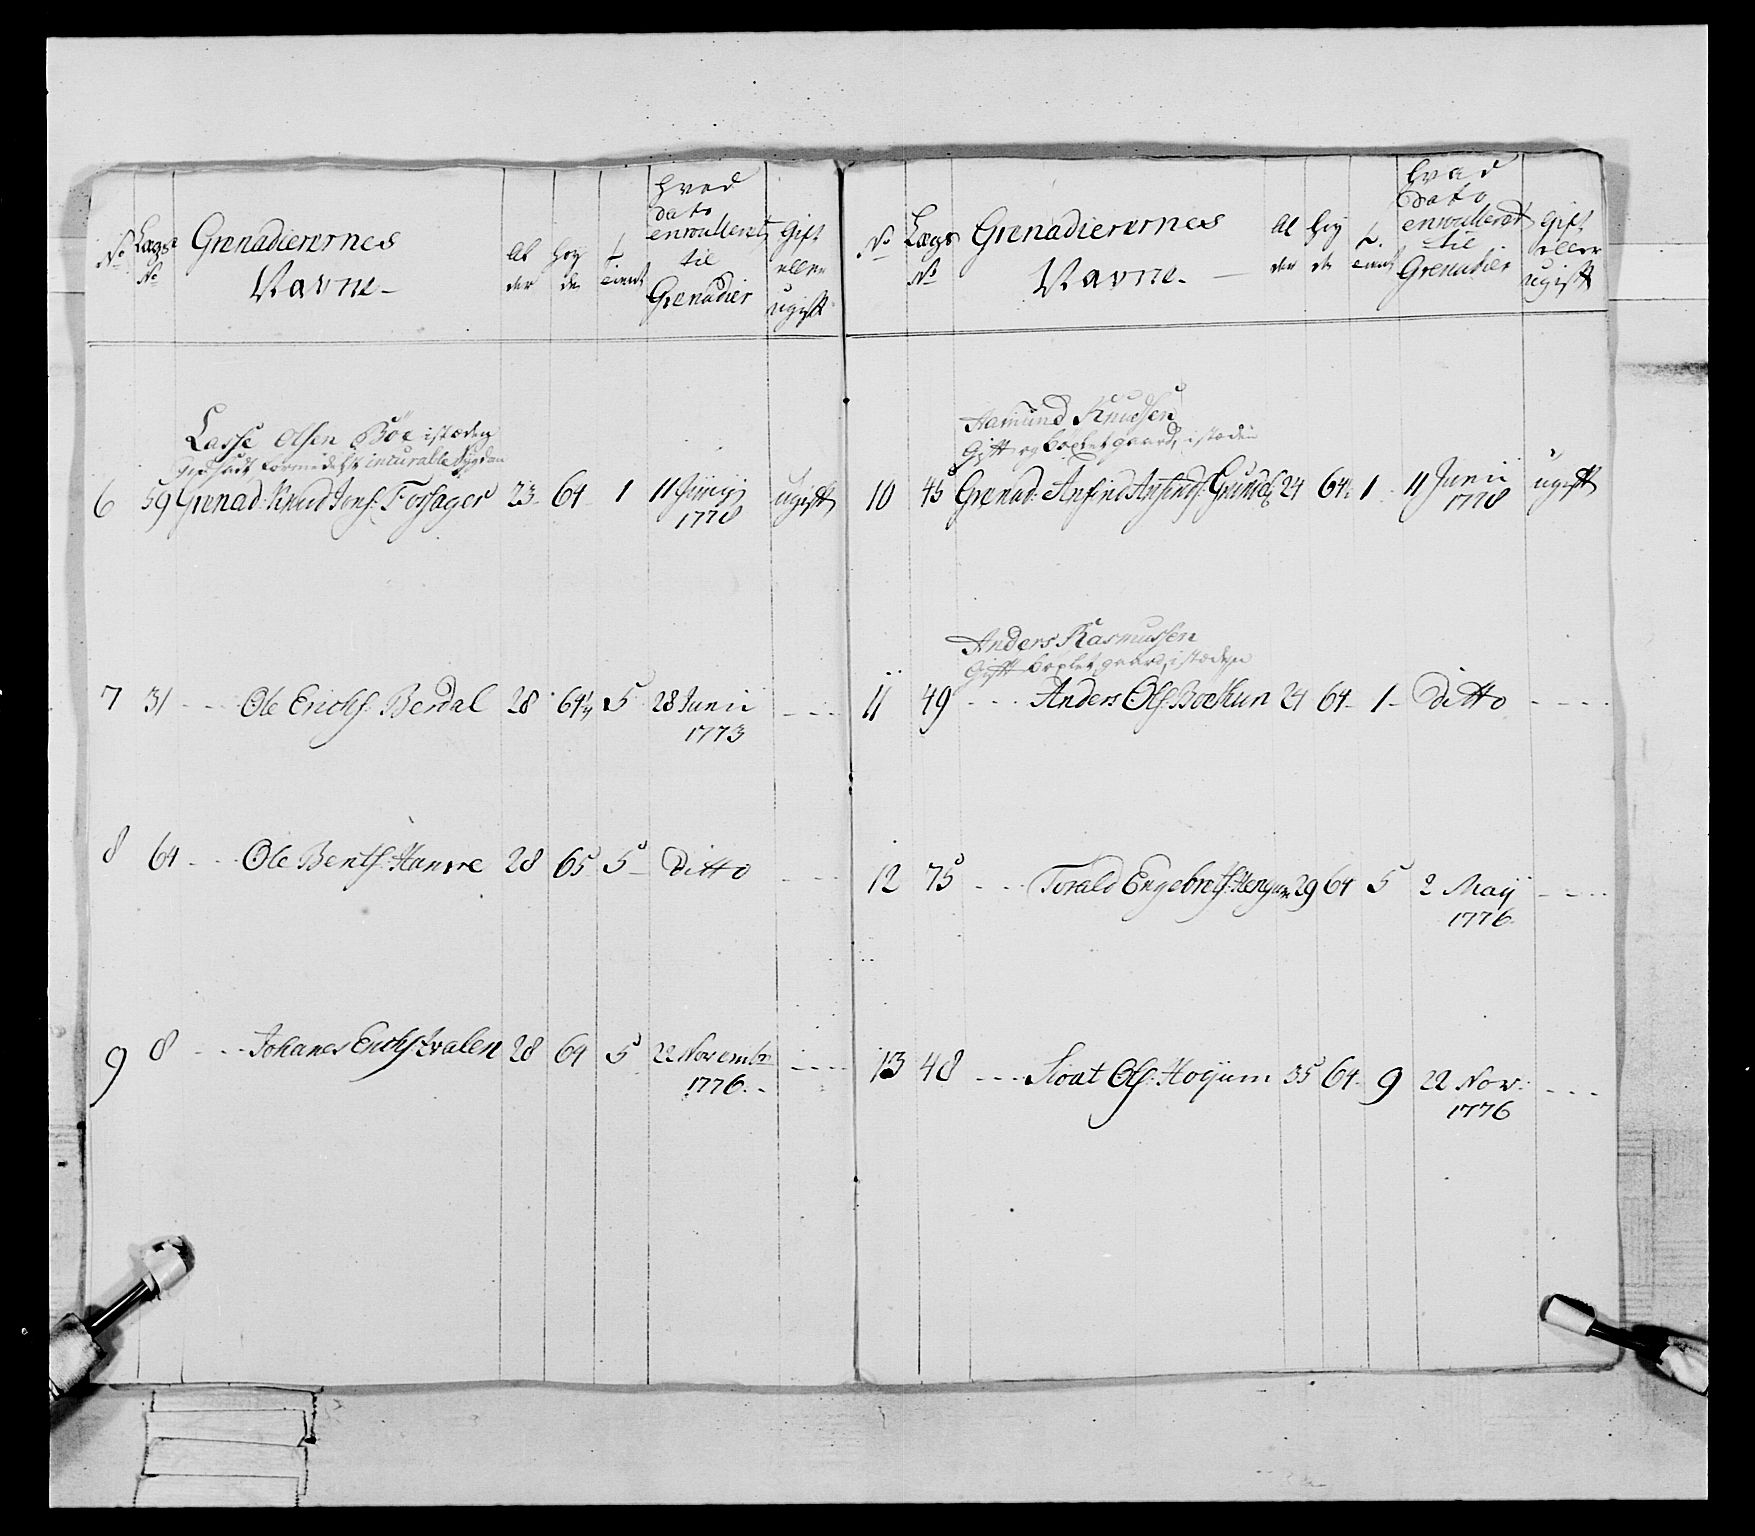 No Lægs No Grenadierernes Navne Al der Høy de tient hvad dato enroulleret til Grenadier Gift eller ugift
Lasse Olsen Böe i stæden
formedelst incurable
6 59 Grenad: Knud Jons: Forsager 23 64 1 11 Junij 1778 ugift
7 31 - - - Ole Erichs: Berdal 28 64¼ 5 28 Junii 1773 - - -
8 64 - - - Ole Bents: Hamre 28 65 5 Ditto - - -
9 8 - - - Johanes Erichs: 28 64 5 22 Novembr 1776 - - - -
No Lægs No Grenadierernes Navne Al der Høy de tient hvad dato enroulleret til Grenadier Gift eller ugift
Aamund Knudsen
Gift og boplet gaard, i stæden
10 45 Grenad: Anfind Anfinds: 24 64½ 1 11 Junii 1778 ugift
Anders Rasmussen
Gift boplet gaard, i stæden
11 49 - - - Anders Ols: 24 64 1 Ditto - - - -
12 75 - - - Torald Engebrets: 29 64 5 2 Maij 1776 - - - -
13 48 - - - Sioat Ols: Høyum 35 64 9 22 Nov: 1776 - - -